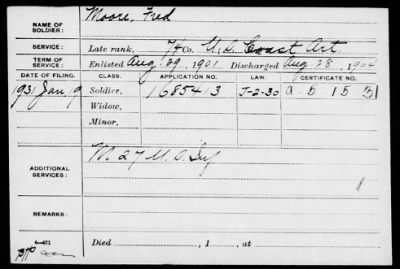 NAME OF SOLDIER: Moore, Fred
SERVICE: Late rank, 74 Co. U.S. Coast Art.
TERM OF SERVICE: Enlisted Aug 29, 1901 Discharged Aug 28, 1904
DATE OF FILING. CLASS. APPLICATION NO. LAW. CERTIFICATE NO.
1931 Jan. 9 Soldier, 1685413 J-2-30 a 5 15 51
Widow,
Minor,
ADDITIONAL SERVICES: M 27 U.S. Inf.
REMARKS:
Died , 1 , at